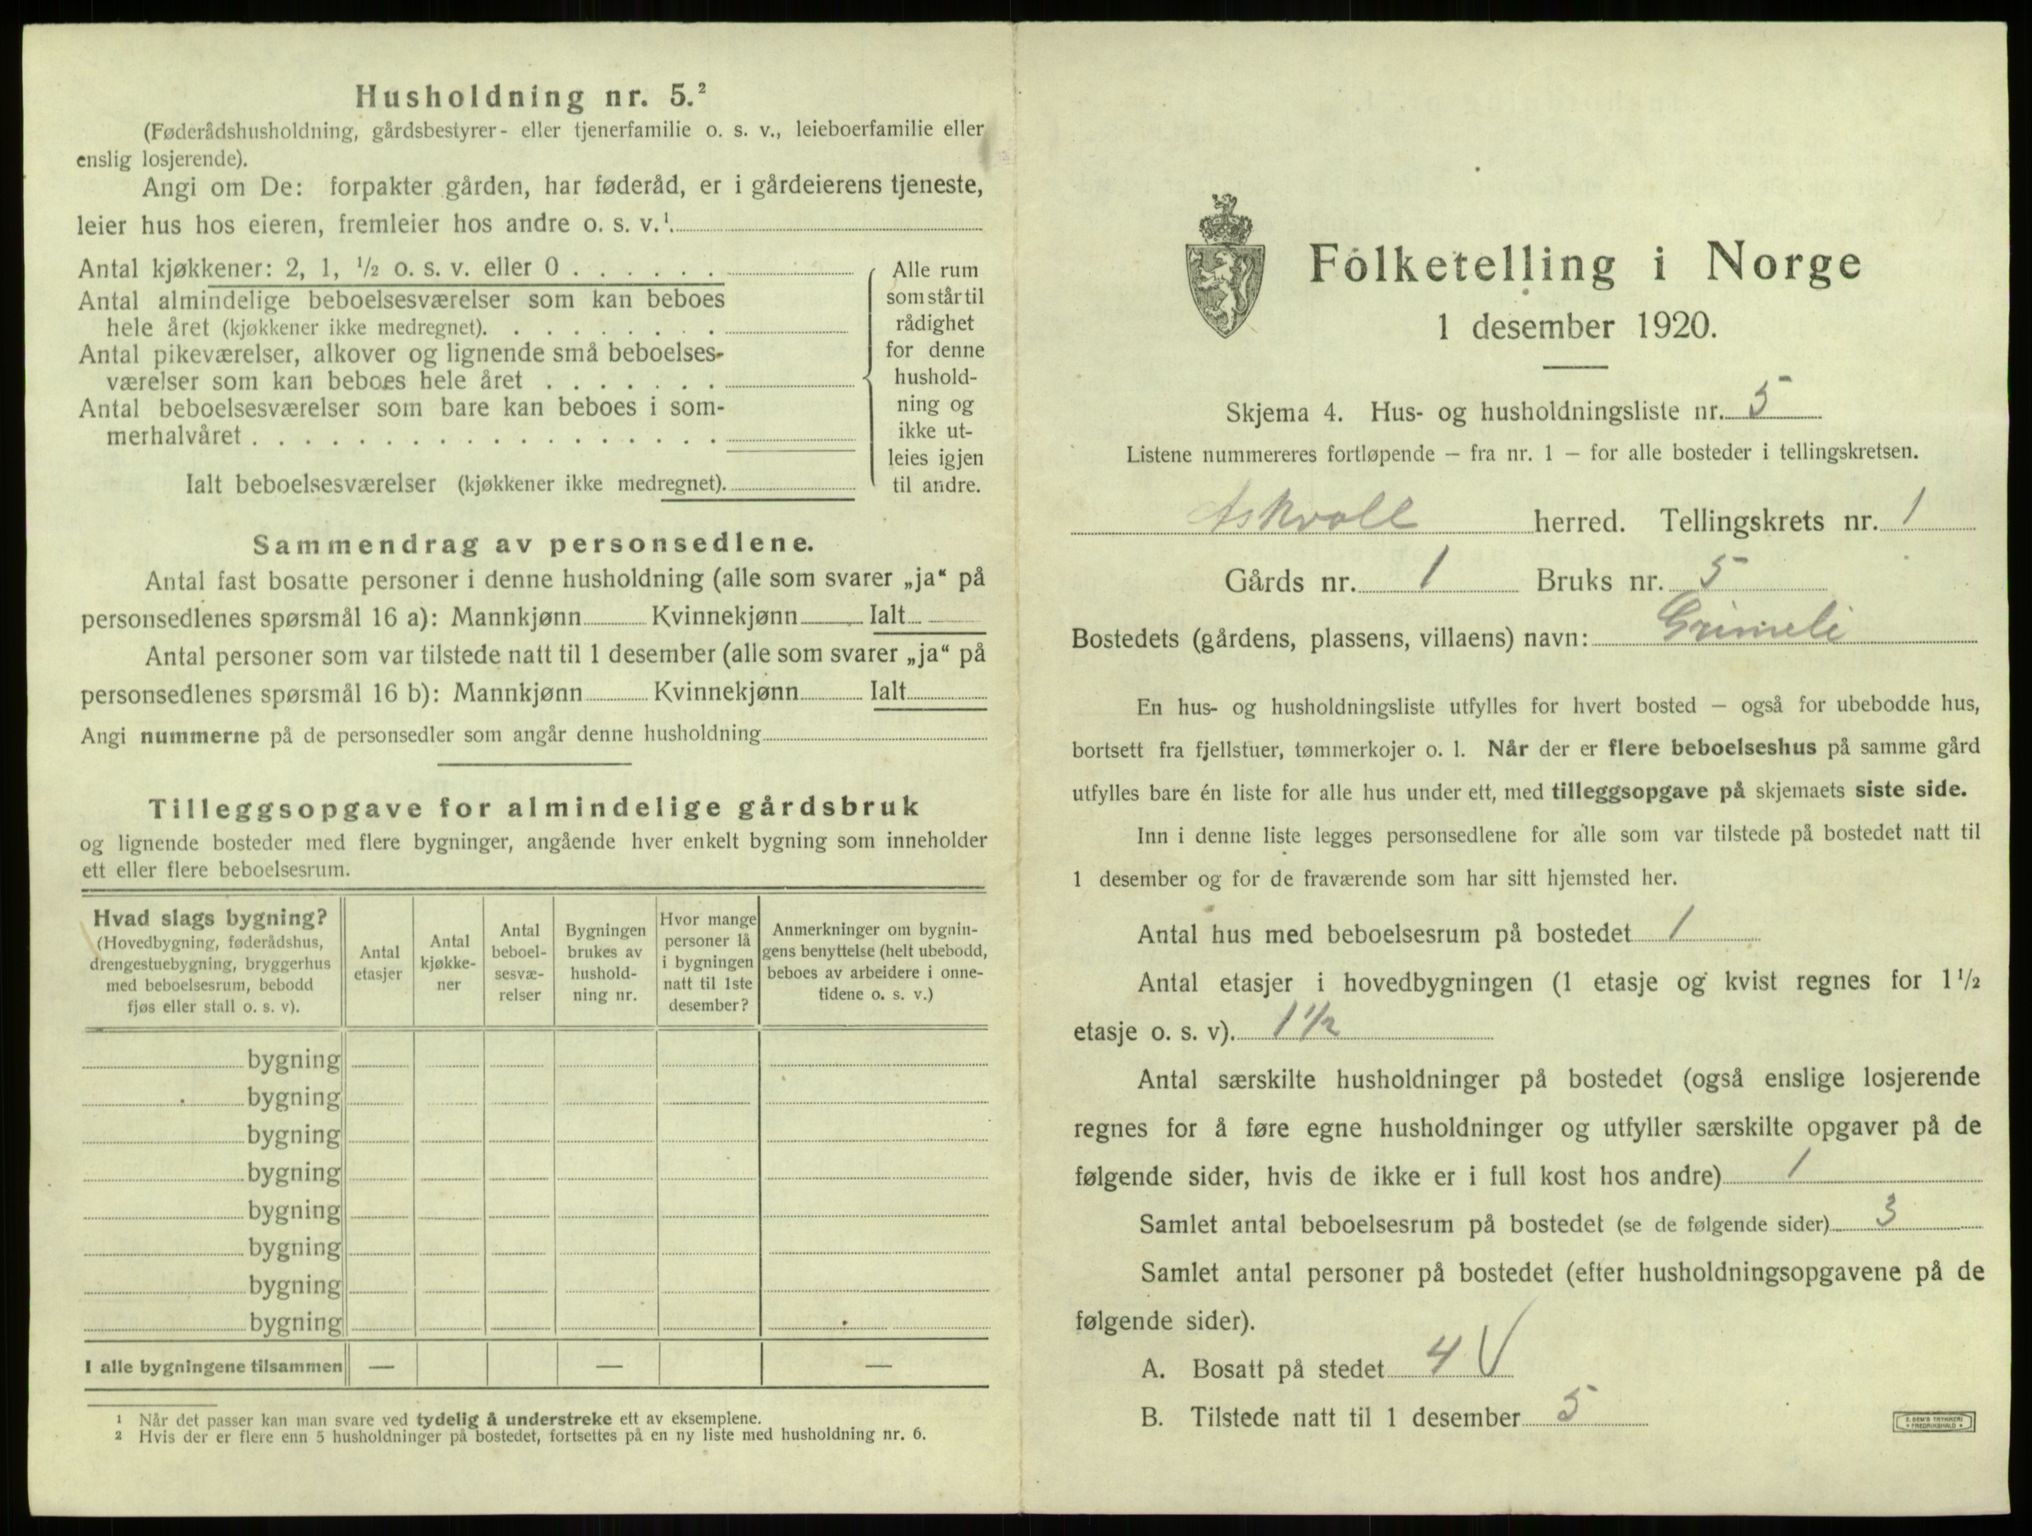 Husholdning nr. 5.²
(Føderådshusholdning, gårdsbestyrer- eller tjenerfamilie o. s. v., leieboerfamilie eller
enslig losjerende).
Angi om De: forpakter gården, har føderåd, er i gårdeierens tjeneste,
leier hus hos eieren, fremleier hos andre o. s. v.¹.
Antal kjøkkener: 2, 1, ½ o. s. v. eller 0 . . . . . .
Antal almindelige beboelsesværelser som kan beboes
hele året (kjøkkener ikke medregnet). . . . . . . . .
Antal pikeværelser, alkover og lignende små beboelses-
værelser som kan beboes hele året . . . . . . .
Antal beboelsesværelser som bare kan beboes i som-
merhalvåret . . . . . . . . . . . . . . . . . .
Ialt beboelsesværelser (kjøkkener ikke medregnet).
Alle rum
som står til
rådighet
for denne
hushold-
ning og
ikke ut-
leies igjen
til andre.
Sammendrag av personsedlene.
Antal fast bosatte personer i denne husholdning (alle som svarer „ja“ på
personsedlenes spørsmål 16 a): Mannkjønn Kvinnekjønn Ialt
Antal personer som var tilstede natt til 1 desember (alle som svarer „ja“ på
personsedlenes spørsmål 16 b): Mannkjønn Kvinnekjønn Ialt
Angi nummerne på de personsedler som angår denne husholdning
Tilleggsopgave for almindelige gårdsbruk
og lignende bosteder med flere bygninger, angående hver enkelt bygning som inneholder
ett eller flere beboelsesrum.
Hvad slags bygning?
(Hovedbygning, føderådshus,
drengestuebygning, bryggerhus
med beboelsesrum, bebodd
fjøs eller stall o. s. v).
Antal
etasjer
Antal
kjøkke-
ner
Antal
beboel-
sesvæ-
relser
Bygningen
brukes av
hushold-
ning nr.
Hvor mange
personer lå
i bygningen
natt til 1ste
desember?
Anmerkninger om bygnin-
gens benyttelse (helt ubebodd,
beboes av arbeidere i onne-
tidene o. s. v.)
bygning
bygning
bygning
bygning
bygning
bygning
bygning
bygning
I alle bygningene tilsammen — — —
¹ Når det passer kan man svare ved tydelig å understreke ett av eksemplene.
² Hvis der er flere enn 5 husholdninger på bostedet, fortsettes på en ny liste med husholdning nr. 6.
Folketelling i Norge
1 desember 1920.
Skjema 4. Hus- og husholdningsliste nr. 5
Listene nummereres fortløpende – fra nr. 1 – for alle bosteder i tellingskretsen.
Askvoll herred. Tellingskrets nr. 1
Gårds nr. 1 Bruks nr. 5
Bostedets (gårdens, plassens, villaens) navn: Grimeli
En hus- og husholdningsliste utfylles for hvert bosted – også for ubebodde hus,
bortsett fra fjellstuer, tømmerkojer o. l. Når der er flere beboelseshus på samme gård
utfylles bare én liste for alle hus under ett, med tilleggsopgave på skjemaets siste side.
Inn i denne liste legges personsedlene for alle som var tilstede på bostedet natt til
1 desember og for de fraværende som har sitt hjemsted her.
Antal hus med beboelsesrum på bostedet 1
Antal etasjer i hovedbygningen (1 etasje og kvist regnes for 1½
etasje o. s. v). 1½
Antal særskilte husholdninger på bostedet (også enslige losjerende
regnes for å føre egne husholdninger og utfyller særskilte opgaver på de
følgende sider, hvis de ikke er i full kost hos andre) 1
Samlet antal beboelsesrum på bostedet (se de følgende sider) 3
Samlet antal personer på bostedet (efter husholdningsopgavene på de
følgende sider).
A. Bosatt på stedet 4 V
B. Tilstede natt til 1 desember 5